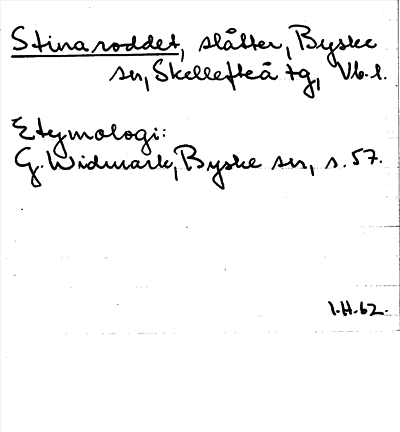 Stinaroddet, slåtter, Byske
sn, Skellefteå tg, Vb. l.
Etymologi:
G. Widmark, Byske sn, s. 57.
I.H.62.